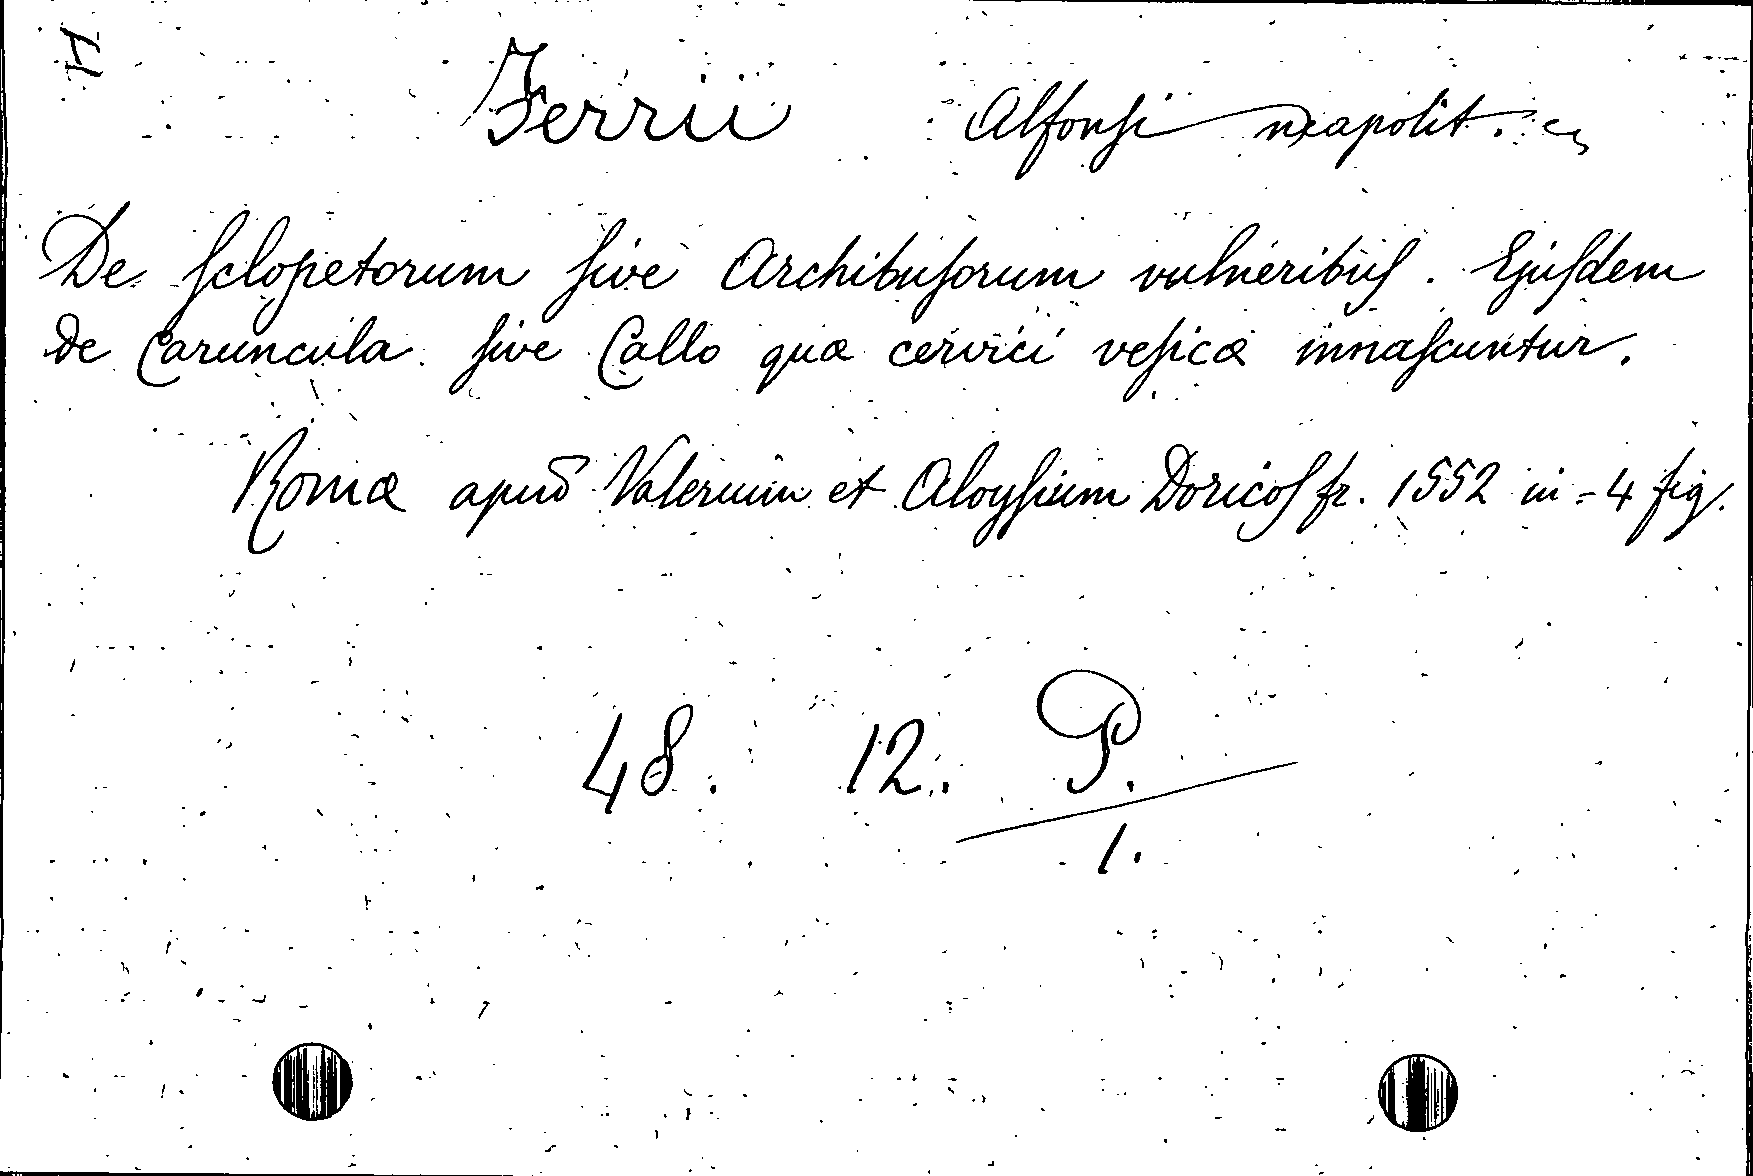 H
Ferrii Alfonsi neapolit.
De sclopetorum sive Archibusorum vulneribus. Ejusdem
de Caruncula sive Callo quæ cervici vesicæ innascuntur.
Romæ apud Valerium et Aloysium Doricos fr. 1552 in-4 fig.
48. 12. P.
1.